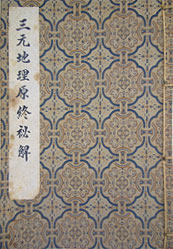 三元地理原終秘解